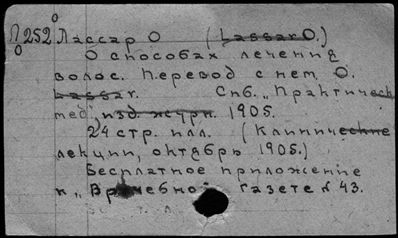 П 252 Лассар О (Lassar O.)
О способах лечения
волос. Перевод с нем. О.
Lassar. Спб. „Практическ
мед", изд. журн. 1905.
24 стр. илл. (Клинические
лекции, октябрь 1905.)
Бесплатное приложение
к „Врачебной газете № 43.